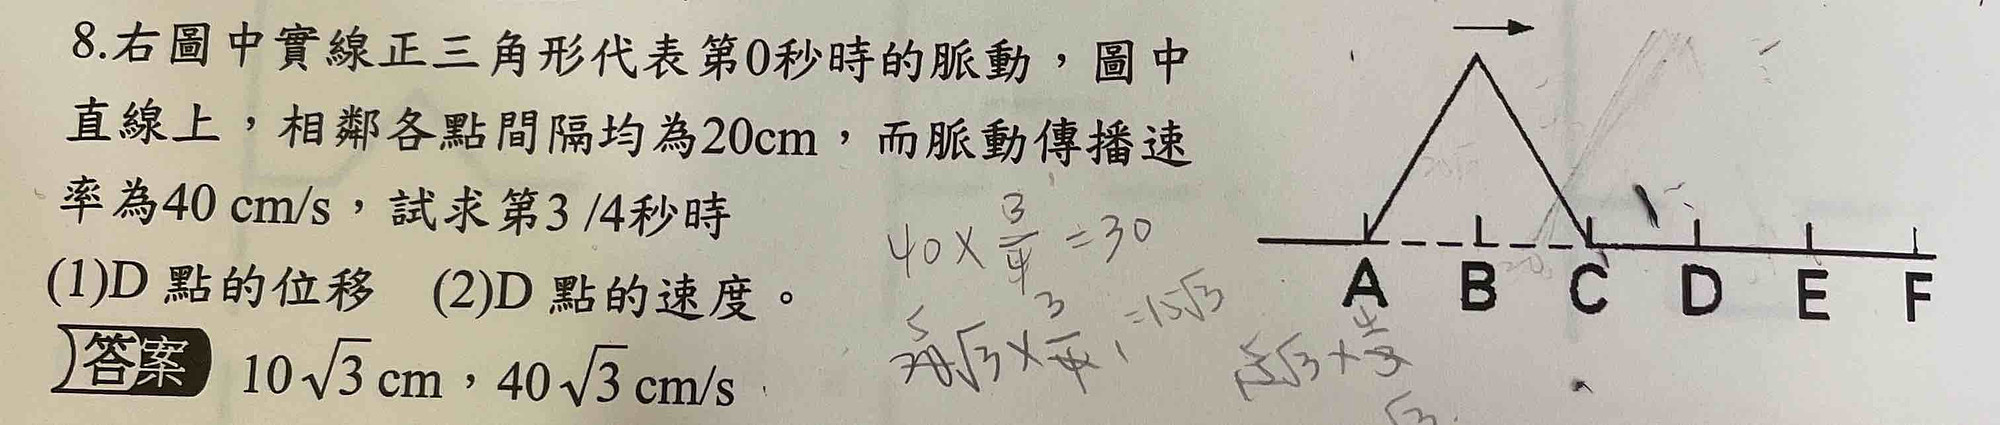 8.右圖中實線正三角形代表第0秒時的脈動，圖中
直線上，相鄰各點間隔均為20cm，而脈動傳播速
率為40 cm/s，試求第3 /4秒時
(1)D 點的位移 (2)D 點的速度。
答案 10√3 cm，40√3 cm/s
40×3/4=30
=15√3
A B C D E F